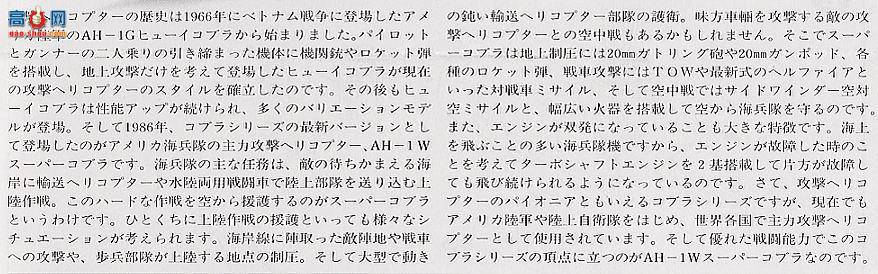 コプターの歴史は1966年にベトナム戦争に登場したアメ
のAH-1Gヒューイコブラから始まりました。パイロット
とガンナーの二人乗りの引き締まった機体に機関銃やロケット弾
を搭載し、地上攻撃だけを考えて登場したヒューイコブラが現在
の攻撃ヘリコプターのスタイルを確立したのです。その後もヒュ
ーイコブラは性能アップが続けられ、多くのバリエーションモデ
ルが登場。そして1986年、コブラシリーズの最新バージョンとし
て登場したのがアメリカ海兵隊の主力攻撃ヘリコプター、AH-1W
スーパーコブラです。海兵隊の主な任務は、敵の待ちかまえる海
岸に輸送ヘリコプターや水陸両用戦闘車で陸上部隊を送り込む上
陸作戦。このハードな作戦を空から援護するのがスーパーコブラ
というわけです。ひとくちに上陸作戦の援護といっても様々なシ
チュエーションが考えられます。海岸線に陣取った敵陣地や戦車
への攻撃や、歩兵部隊が上陸する地点の制圧。そして大型で動き
の鈍い輸送ヘリコプター部隊の護衛。味方車輛を攻撃する敵の攻
撃ヘリコプターとの空中戦もあるかもしれません。そこでスーパ
ーコブラは地上制圧には20mmガトリング砲や20mmガンポッド、各
種のロケット弾、戦車攻撃にはTOWや最新式のヘルファイアと
いった対戦車ミサイル、そして空中戦ではサイドワインダー空対
空ミサイルと、幅広い火器を搭載して空から海兵隊を守るのです。
また、エンジンが双発になっていることも大きな特徴です。海上
を飛ぶことの多い海兵隊機ですから、エンジンが故障した時のこ
とを考えてターボシャフトエンジンを2基搭載して片方が故障し
ても飛び続けられるようになっているのです。さて、攻撃ヘリコ
プターのパイオニアともいえるコブラシリーズですが、現在でも
アメリカ陸軍や陸上自衛隊をはじめ、世界各国で主力攻撃ヘリコ
プターとして使用されています。そして優れた戦闘能力でこのコ
ブラシリーズの頂点に立つのがAH-1Wスーパーコブラなのです。